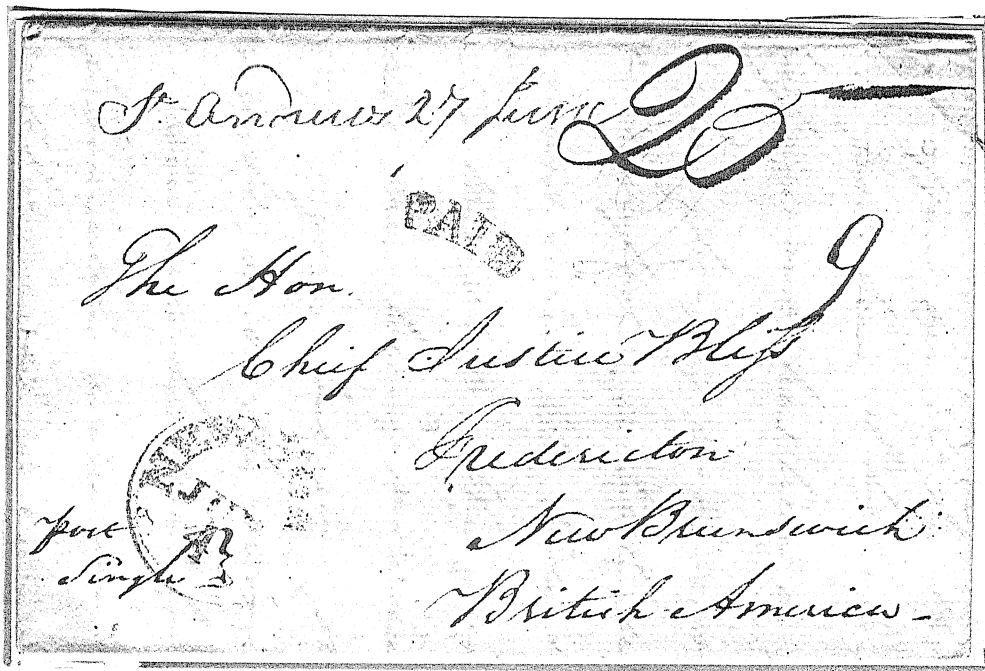 St. Andrews 27 June 25
PAID
9
The Hon.
Chief Justice Bliſs
Fredericton
New Brunswick
British America -
post
Single